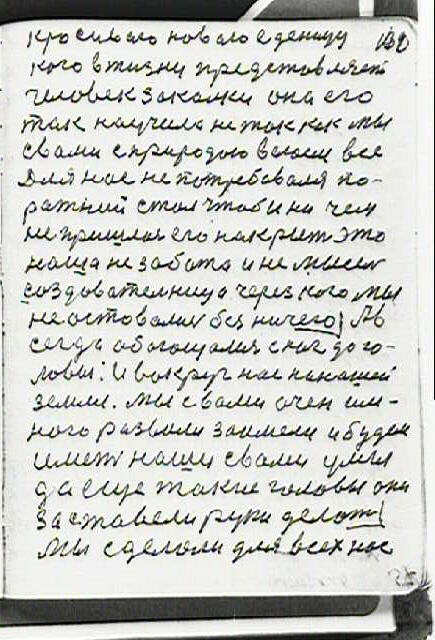 кросивого нового еденицу 130
кого в жизни представляет
человек закалки она его
так научила не так как мы
свами сприродою велися все
Для нас не потребовался по-
ратний стол чтоби на чем
не пришлося его накрыт Это
наша не забота и не мысли
создователница через кого мы
не оставались без ничего| Ав
сегда обогощалися с ног до го-
ловы: И вокруг нас на нашей
земли. мы свами очен им-
ного развели заимели и будем
имет наши свами умил
да еще такие головы они
заставели руки делат|
мы сделали для всех нас